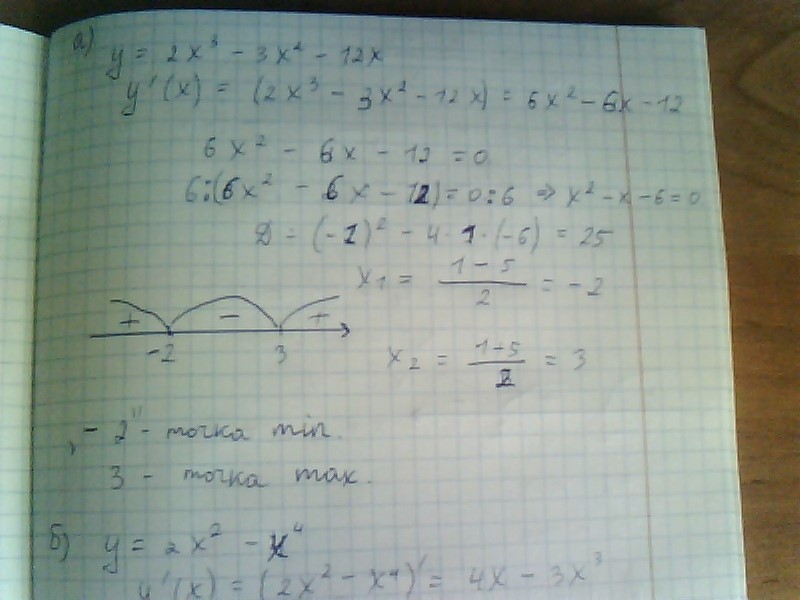 а) y = 2x³ - 3x² - 12x
y'(x) = (2x³ - 3x² - 12x) = 6x² - 6x - 12
6x² - 6x - 12 = 0
6:(6x² - 6x - 12) = 0:6 => x² - x - 6 = 0
D = (-1)² - 4·1·(-6) = 25
x₁ = (1-5)/2 = -2
+ - +
-2 3
x₂ = (1-5)/2 = 3
„-2" - точка min.
3 - точка max.
б) y = 2x² - x⁴
y'(x) = (2x² - x⁴)' = 4x - 3x³